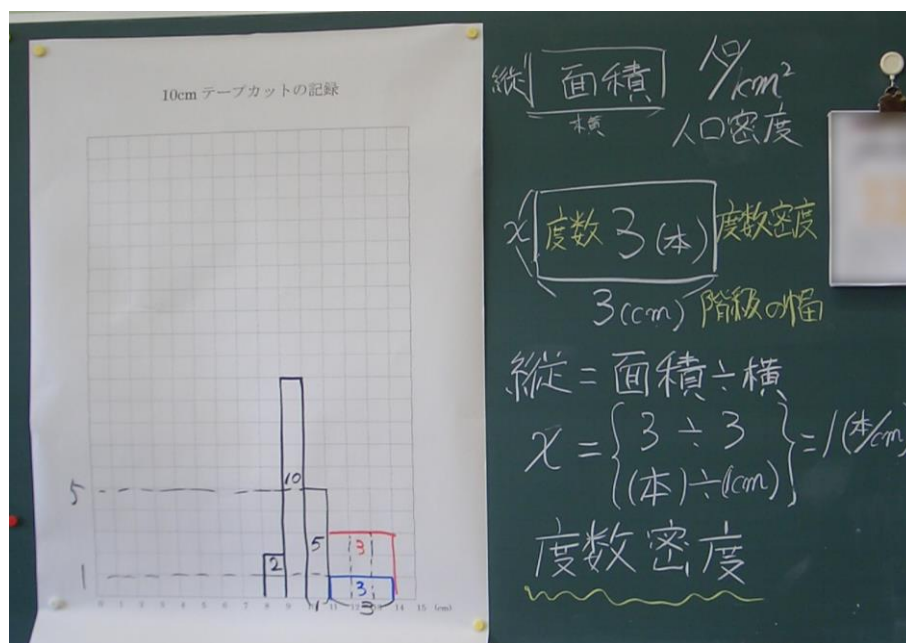 10cm テープカットの記録
5
1
2
10
5
3
3
0 1 2 3 4 5 6 7 8 9 10 11 12 13 14 15 (cm)
1
3
縦 面積
横
人口/1cm²
人口密度
x 度数 3(本) 度数密度
3(cm) 階級の幅
縦=面積÷横
x={3÷3
(本)÷(cm)}=1(本/cm)
度数密度